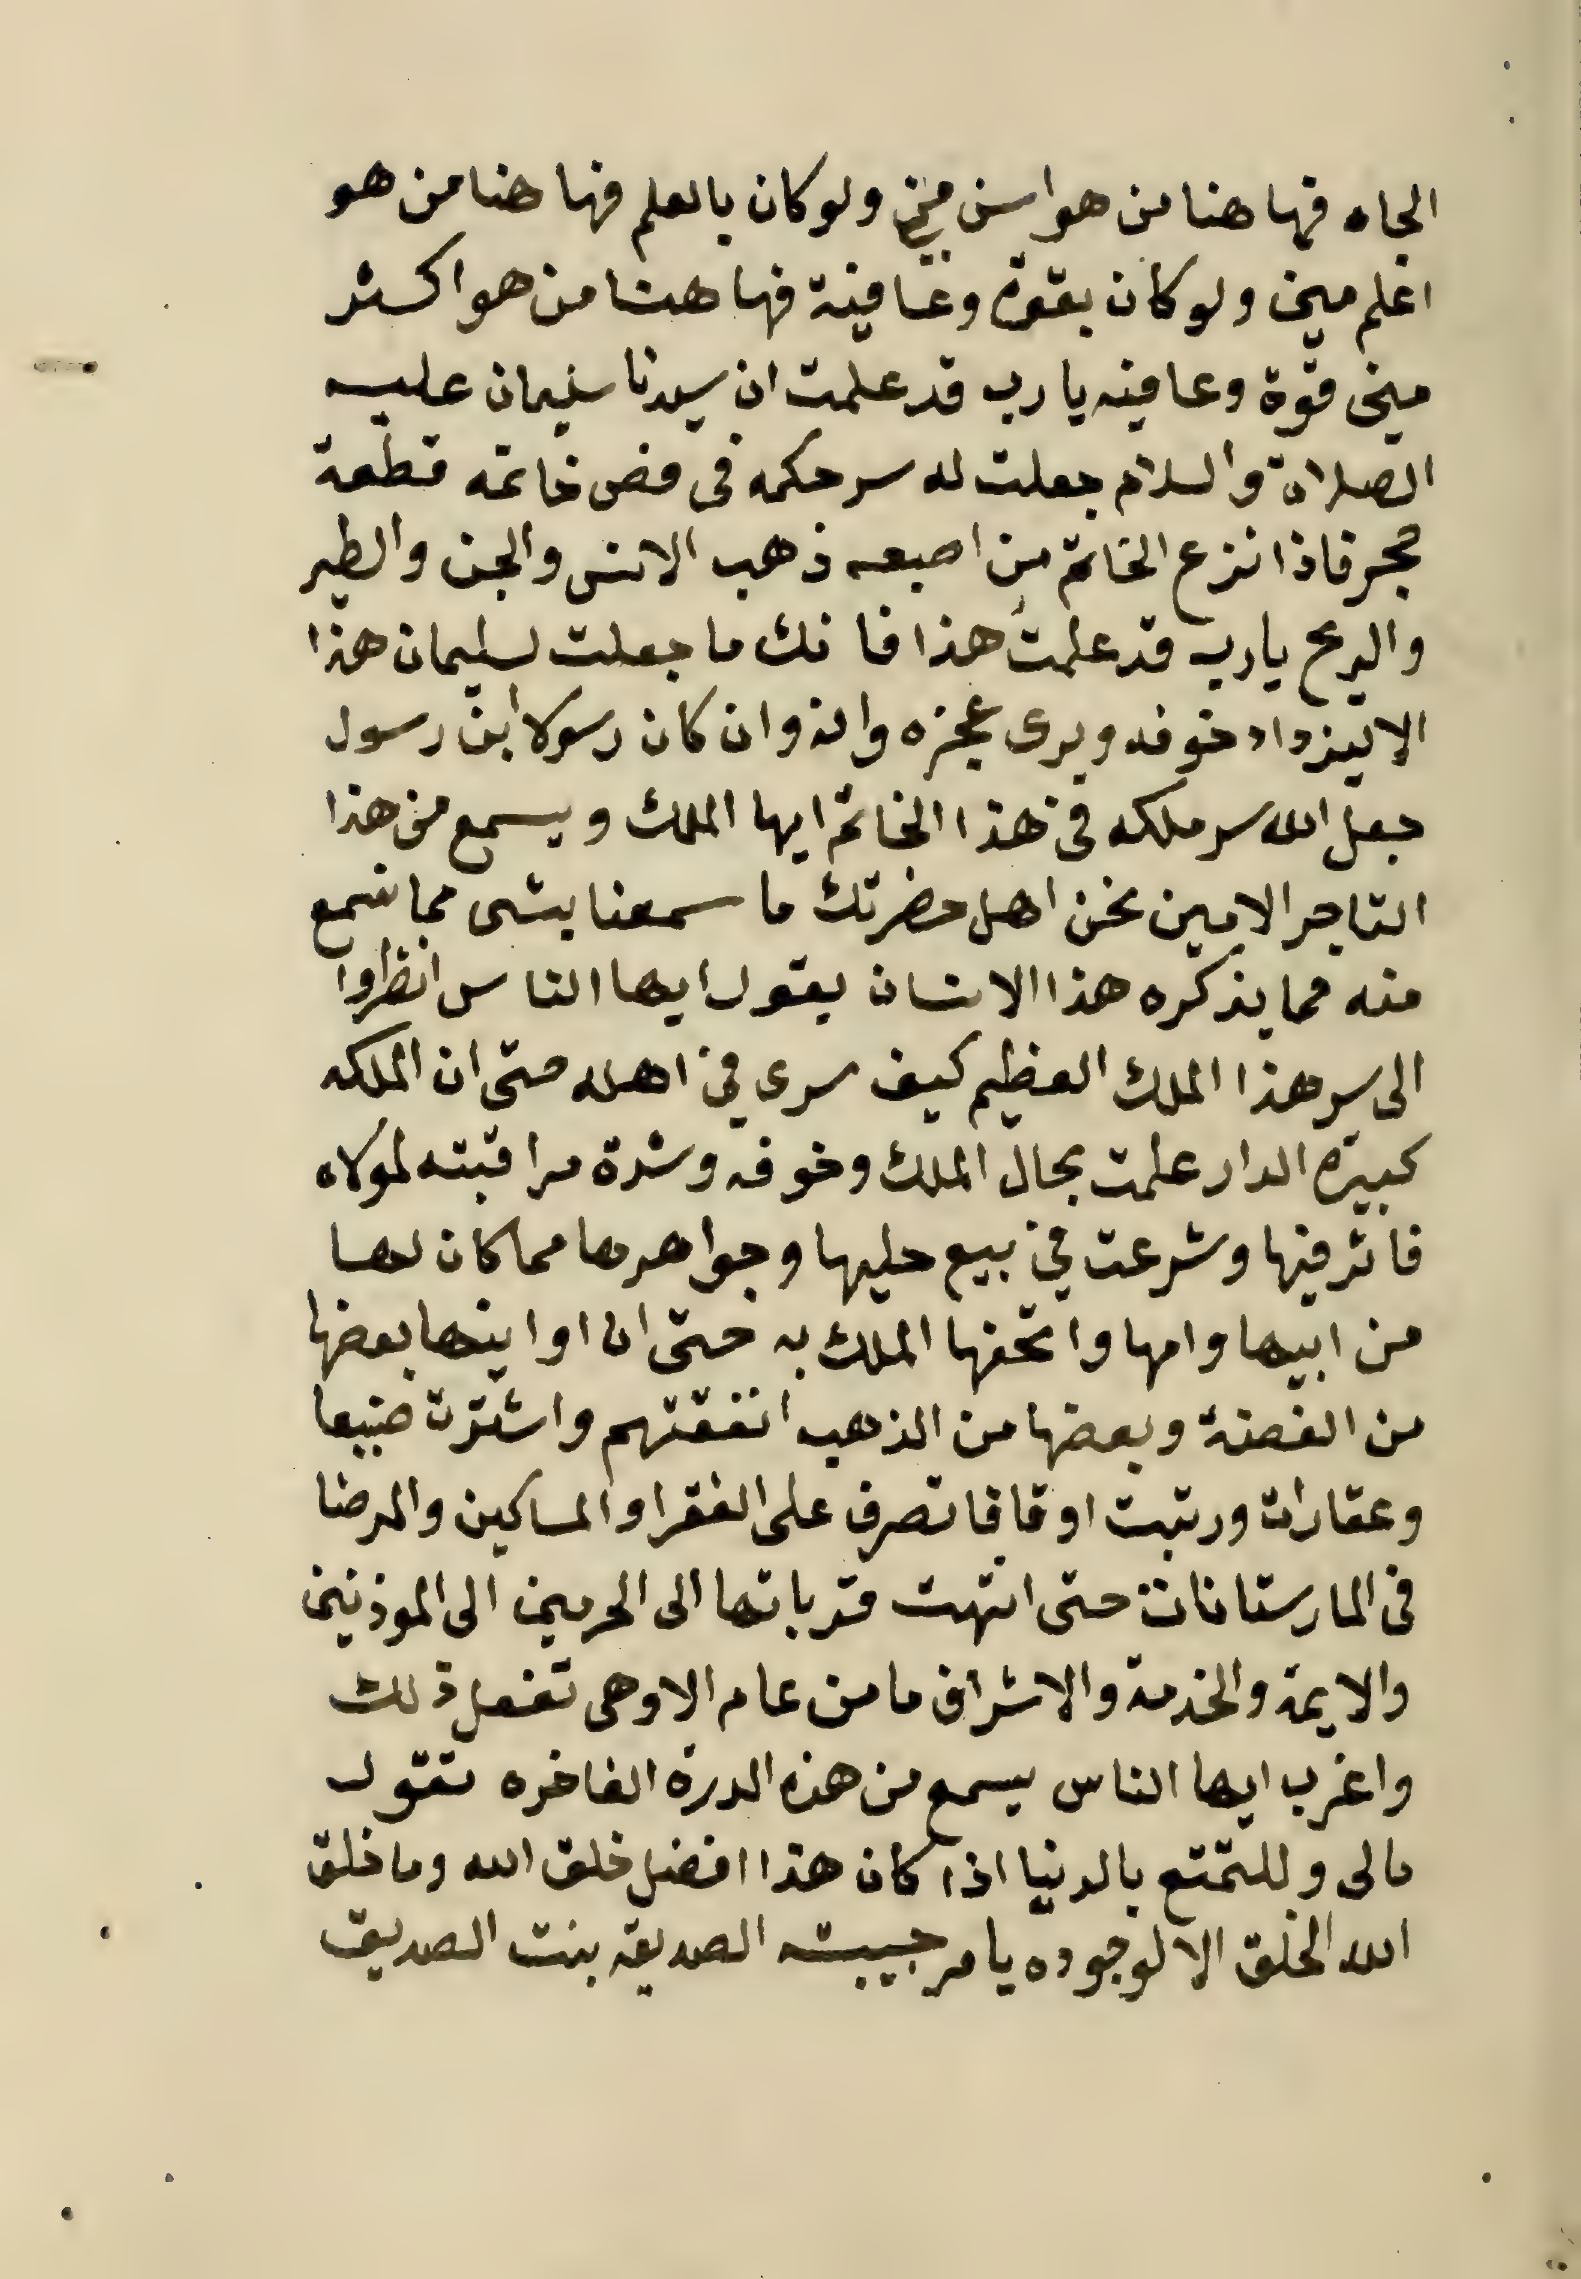 الجاه فها هنا من هو اسن مني ولو كان بالعلم فها هنا من هو
اعلم مني ولو كان بقوة وعافية فها هنا من هو اكثر
منى قوة وعافيه يا رب قد علمت ان سيدنا سليمان عليه
الصلاة والسلام جعلت له سر حكمه فى فص خاتمه قطعة
حجر فاذا نزع الخاتم من اصبعه ذهب الانس والجن والطير
والريح يارب قد علمت هذا فانك ما جعلت لسليمان هذا
الا ليزداد خوفه ويرى عجزه وانه وان كان رسولا ابن رسول
جعل الله سر ملكه فى هذا الخاتم ايها الملك ويسمع من هذا
التاجر الامين نحن اهل حضرتك ما سمعنا بشى مما نسمع
منه مما يذكره هذا الانسان يقول ايها الناس انظروا
الى سر هذا الملك العظيم كيف سرى في اهله حتى ان الملكه
كبيرة الدار علمت بحال الملك وخوفه وشدة مراقبته لمولاه
فاثر فيها وشرعت في بيع حليها وجواهرها مما كان لها
من ابيها وامها واتحفها الملك به حتى ان اوانيها بعضها
من الفضة وبعضها من الذهب انفقتهم واشترت ضيعا
وعقارات ورتبت اوقافا تصرف على الفقرا والمساكين والمرضا
فى المارستانات حتى انتهت قرباتها الى الحرمين الى الموذنين
والايمة والخدمة والاشراف ما من عام الا وهى تفعل ذلك
واغرب ايها الناس يسمع من هذه الدرة الفاخره تقول
مالى وللتمتع بالدنيا اذا كان هذا افضل خلق الله وما خلق
الله الخلق الا لوجوده يامر حبيبته الصديقه بنت الصديق